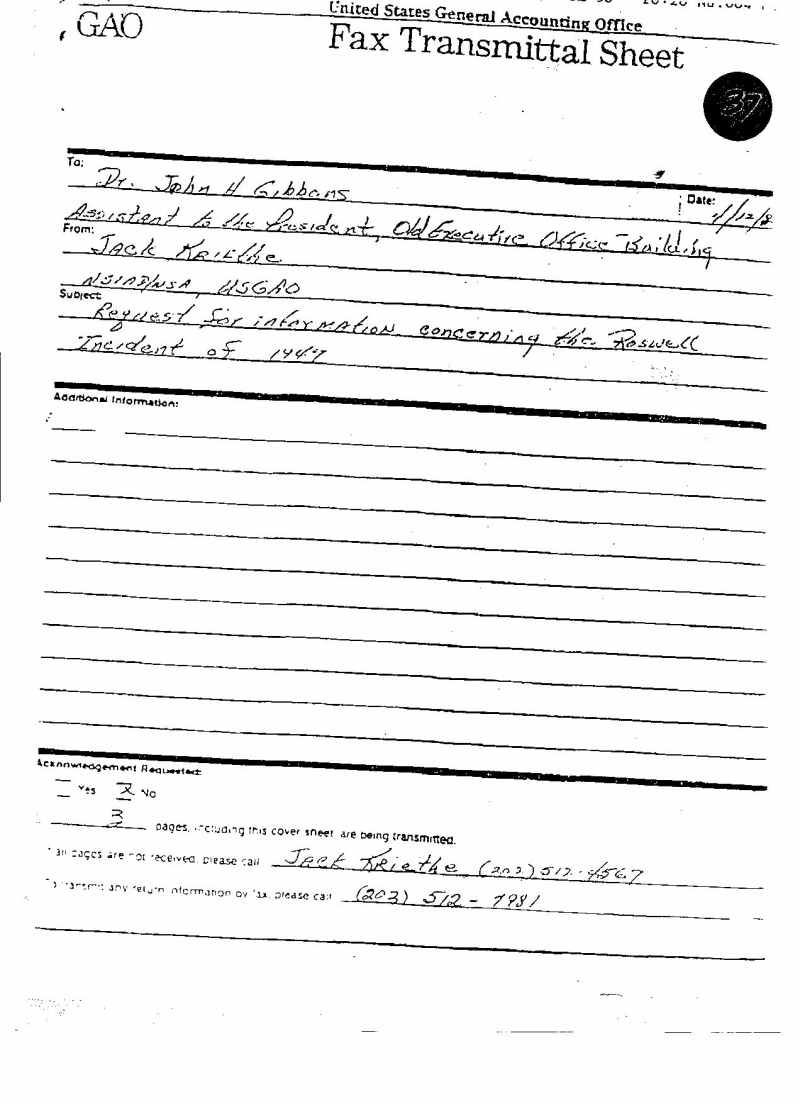 United States General Accounting Office
GAO
Fax Transmittal Sheet
37
To:
Dr. John H Gibbons
Date:
Assistent to the President, Old Executive Office Building
From:
Jack Kriethe
NSIAD/NSA, USGAO
Subject:
Request for information concerning the Roswell
Incident of 1947
Additional Information:
Acknowledgement Requested:
Yes X No
3 pages, including this cover sheet, are being transmitted.
If all pages are not received, please call Jack Kriethe (202) 512-4567
To transmit any return information by fax, please call